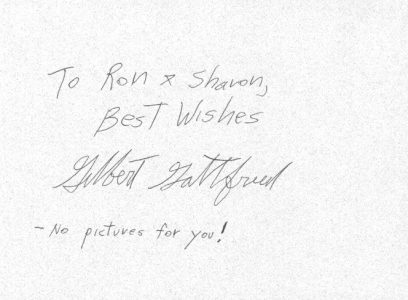 To Ron & Sharon,
Best Wishes
Gilbert Gottfried
- No pictures for you!